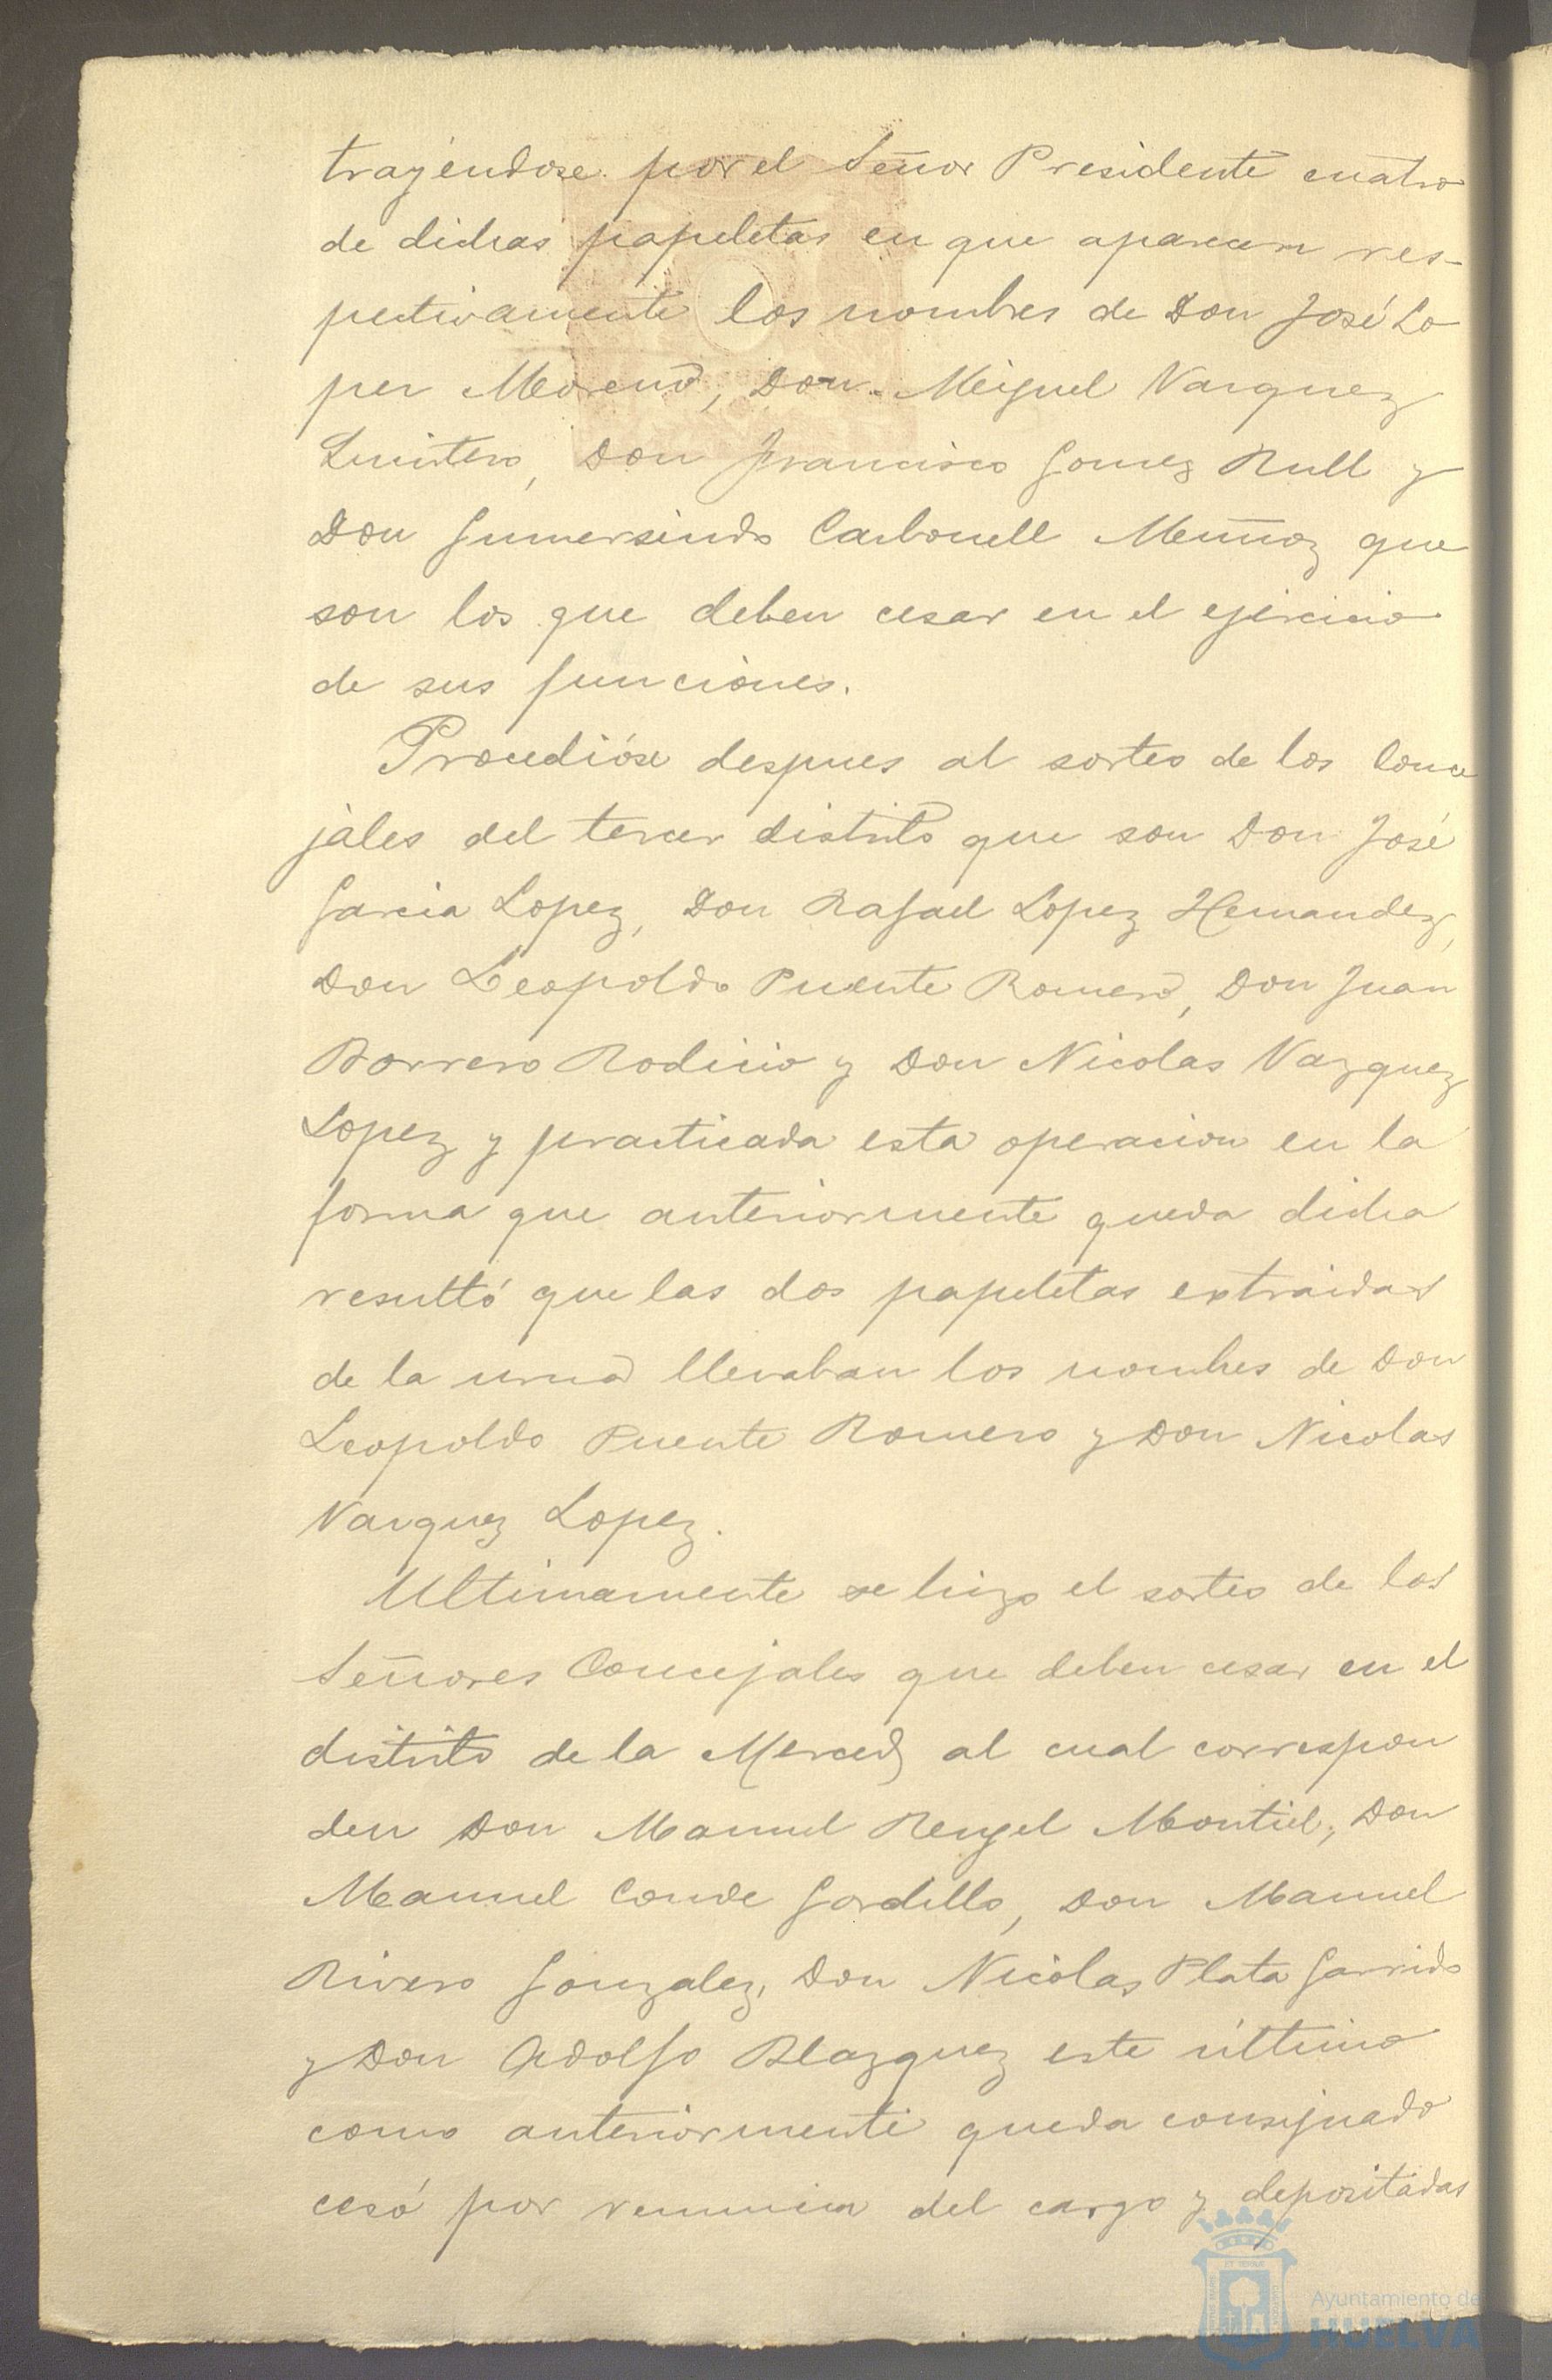 trayéndose por el Señor Presidente cuatro
de dichas papeletas en que aparecen res-
pectivamente los nombres de Don José Lo
pez Moreno, Don Miguel Vazquez
Quintero, Don Francisco Gomez Rull y
Don Gumersindo Carbonell Muñoz que
son los que deben cesar en el ejercicio
de sus funciones.
Procedióse despues al sorteo de los Conce
jales del tercer distrito que son Don José
Garcia Lopez, Don Rafael Lopez Hernandez,
Don Leopoldo Puente Romero, Don Juan
Borrero Rodicio y Don Nicolas Vazquez
Lopez y practicada esta operacion en la
forma que anteriormente queda dicha
resultó que las dos papeletas extraidas
de la urna llevaban los nombres de Don
Leopoldo Puente Romero y Don Nicolas
Vazquez Lopez.
Ultimamente se hizo el sorteo de los
Señores Concejales que deben cesar en el
distrito de la Merced al cual correspon
den Don Manuel Rengel Montiel, Don
Manuel Conde Gordillo, Don Manuel
Rivero Gonzalez, Don Nicolas Plata Garrido
y Don Adolfo Blazquez este último
como anteriormente queda consignado
cesó por renuncia del cargo y depositadas
Ayuntamiento de
HUELVA